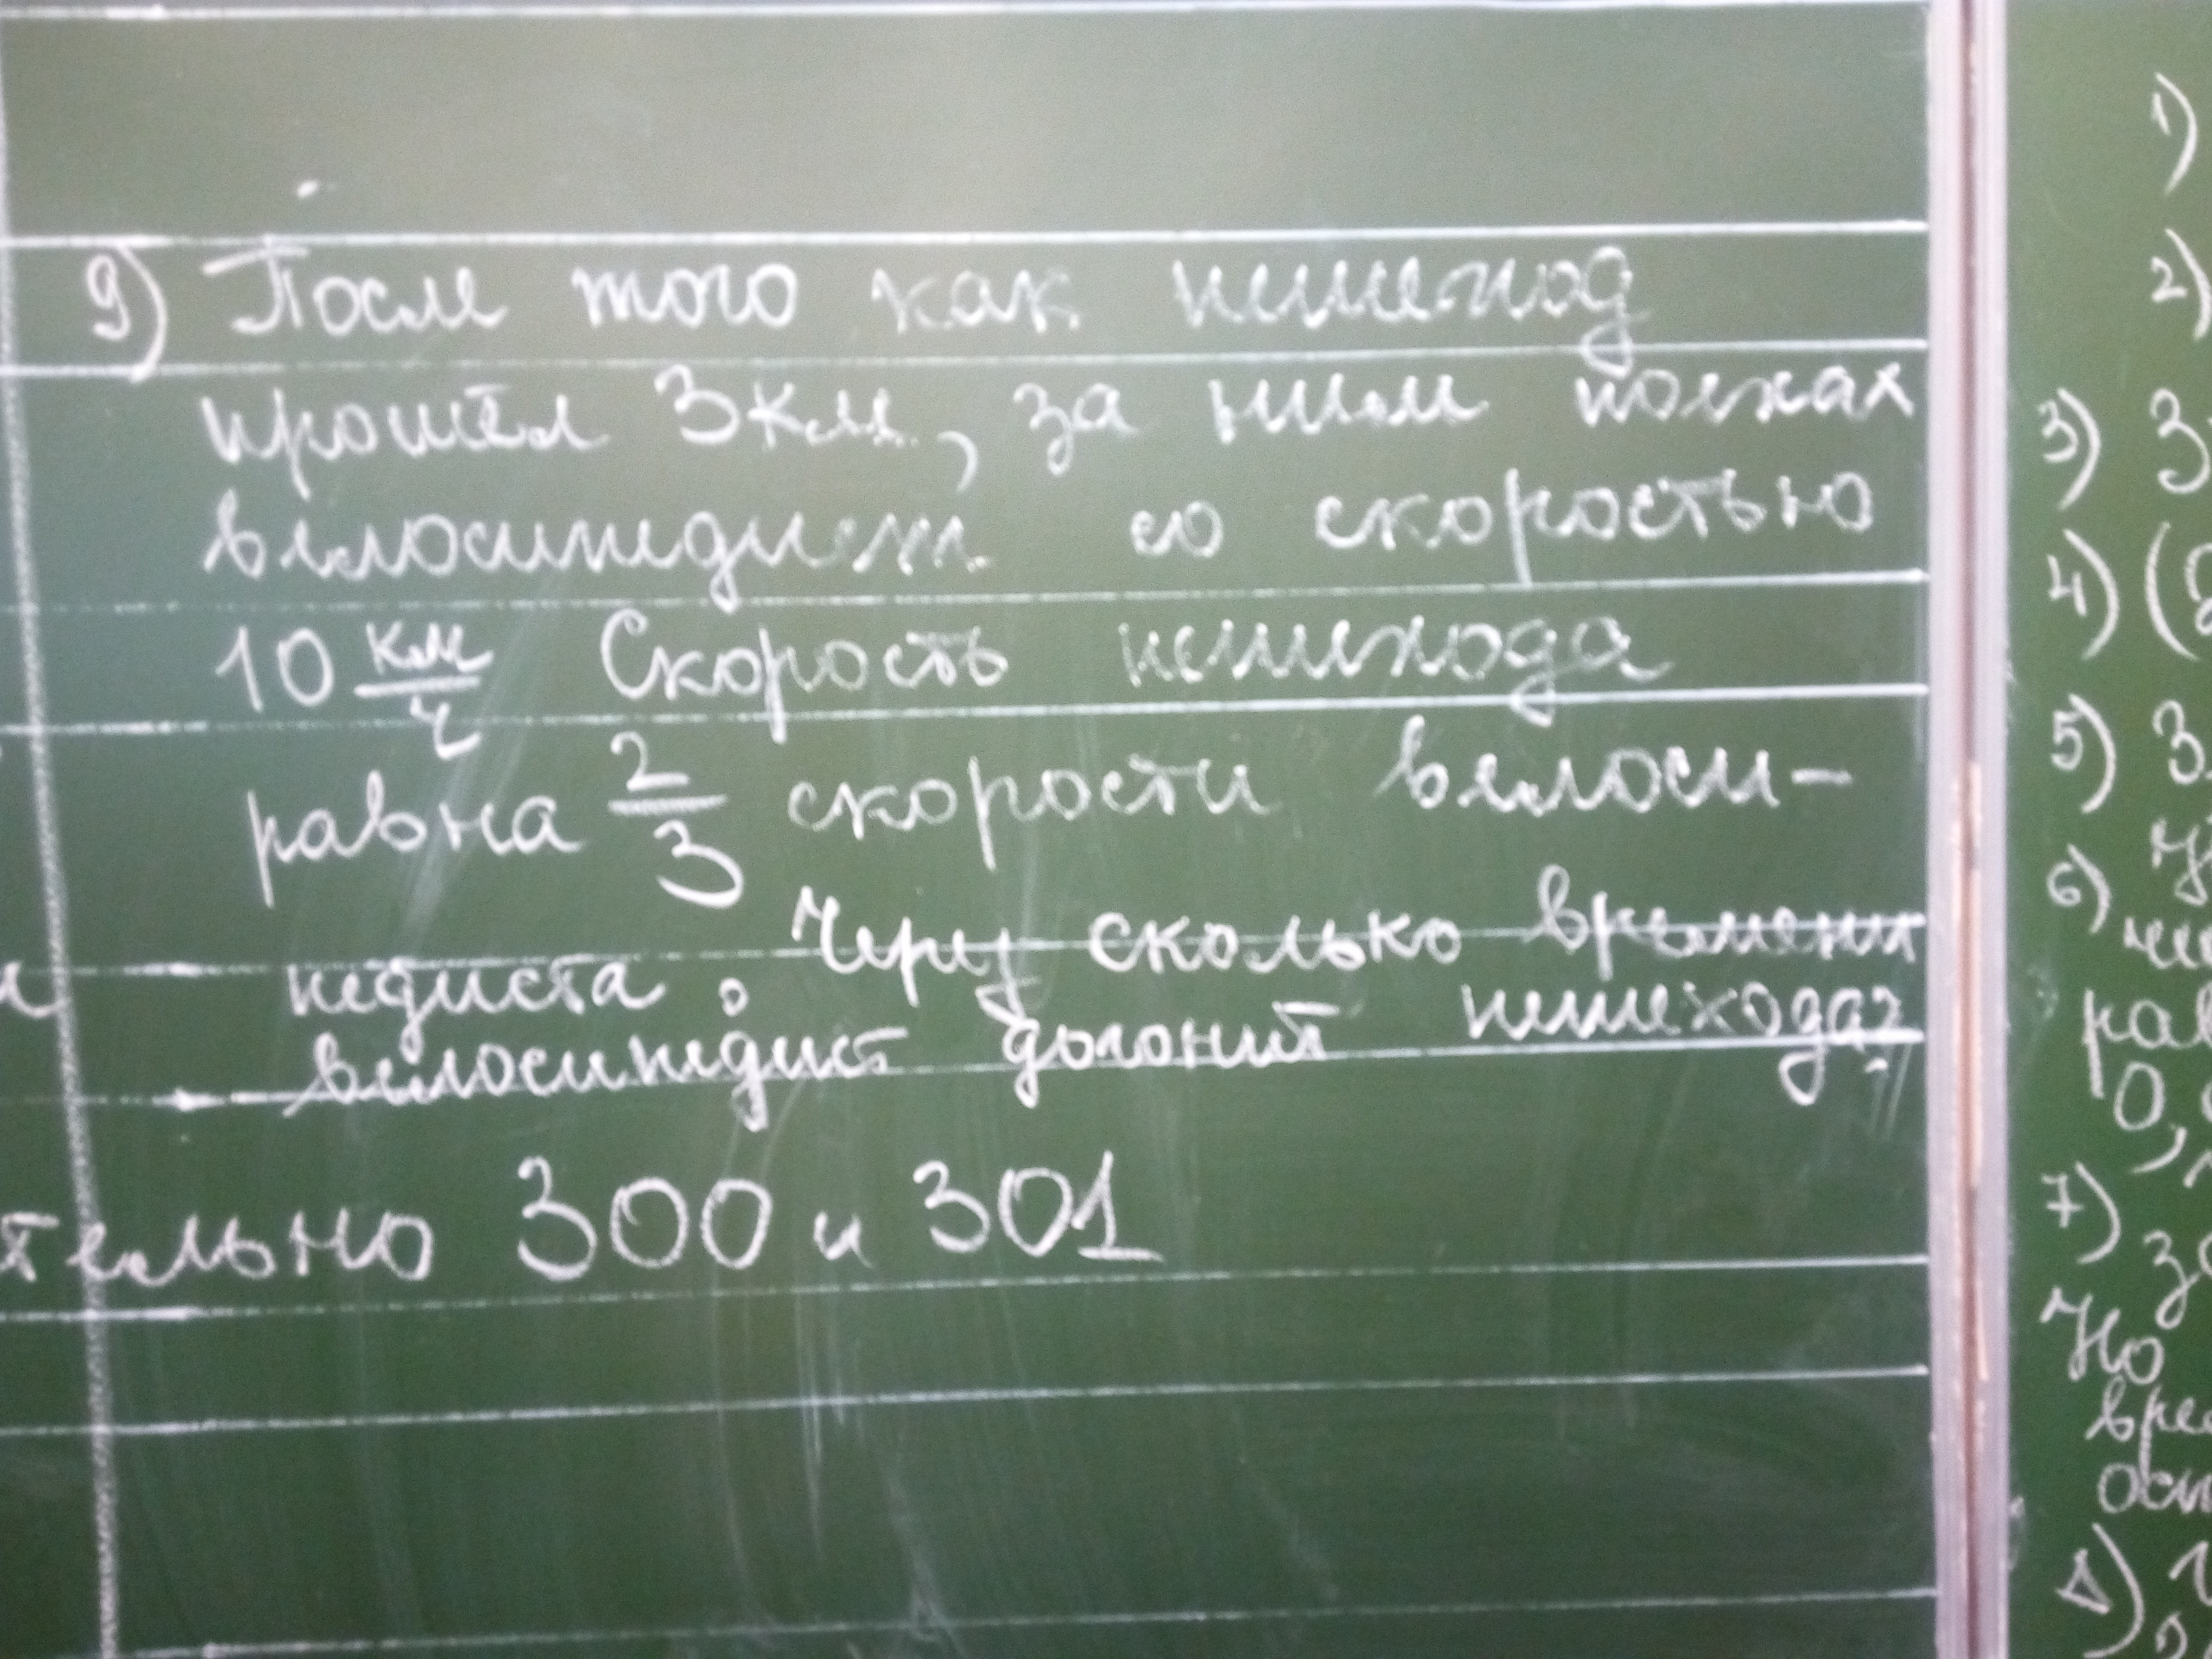 9) После того как пешеход
прошёл 3км, за ним поехал
велосипедист со скоростью
10 км/ч Скорость пешехода
равна 2/3 скорости велоси-
педиста. Через сколько времени
велосипедист догонит пешехода?
тельно 300 и 301
1)
2)
3) 3
4) (
5) 3
6)
ра
0,
7)
за
Но
вре
осн
8)